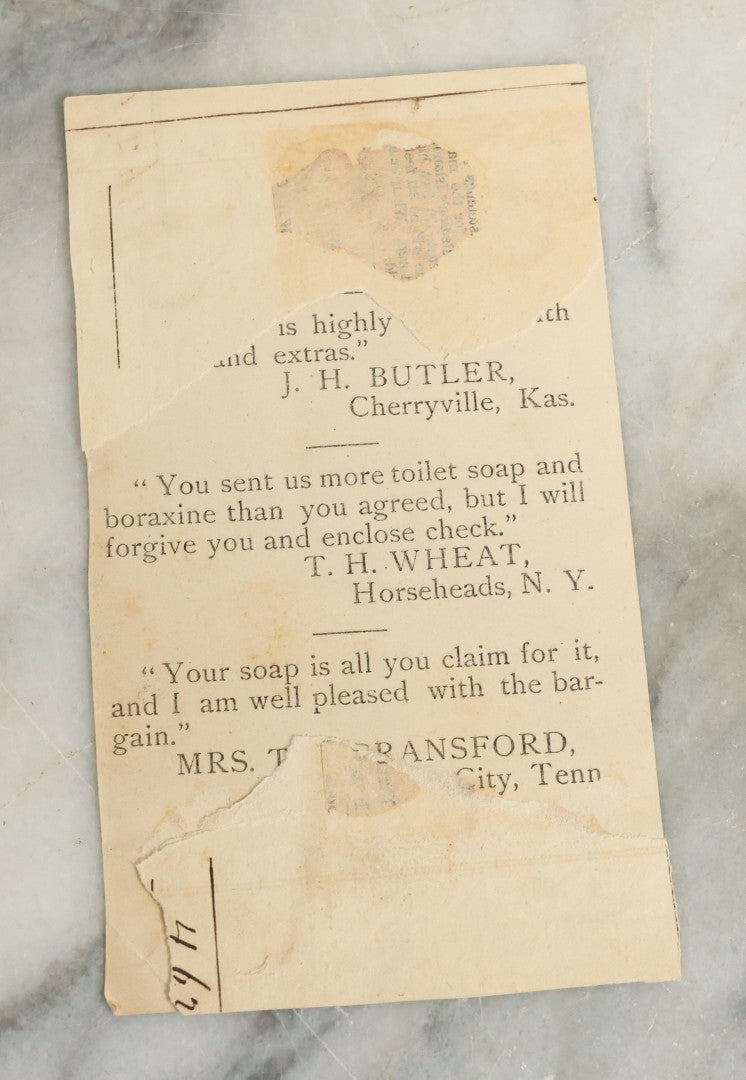 is highly
extras.”
J. H. BUTLER,
Cherryville, Kas.
“ You sent us more toilet soap and
boraxine than you agreed, but I will
forgive you and enclose check.”
T. H. WHEAT,
Horseheads, N. Y.
“ Your soap is all you claim for it,
and I am well pleased with the bar-
gain.”
MRS. BRANSFORD,
City, Tenn